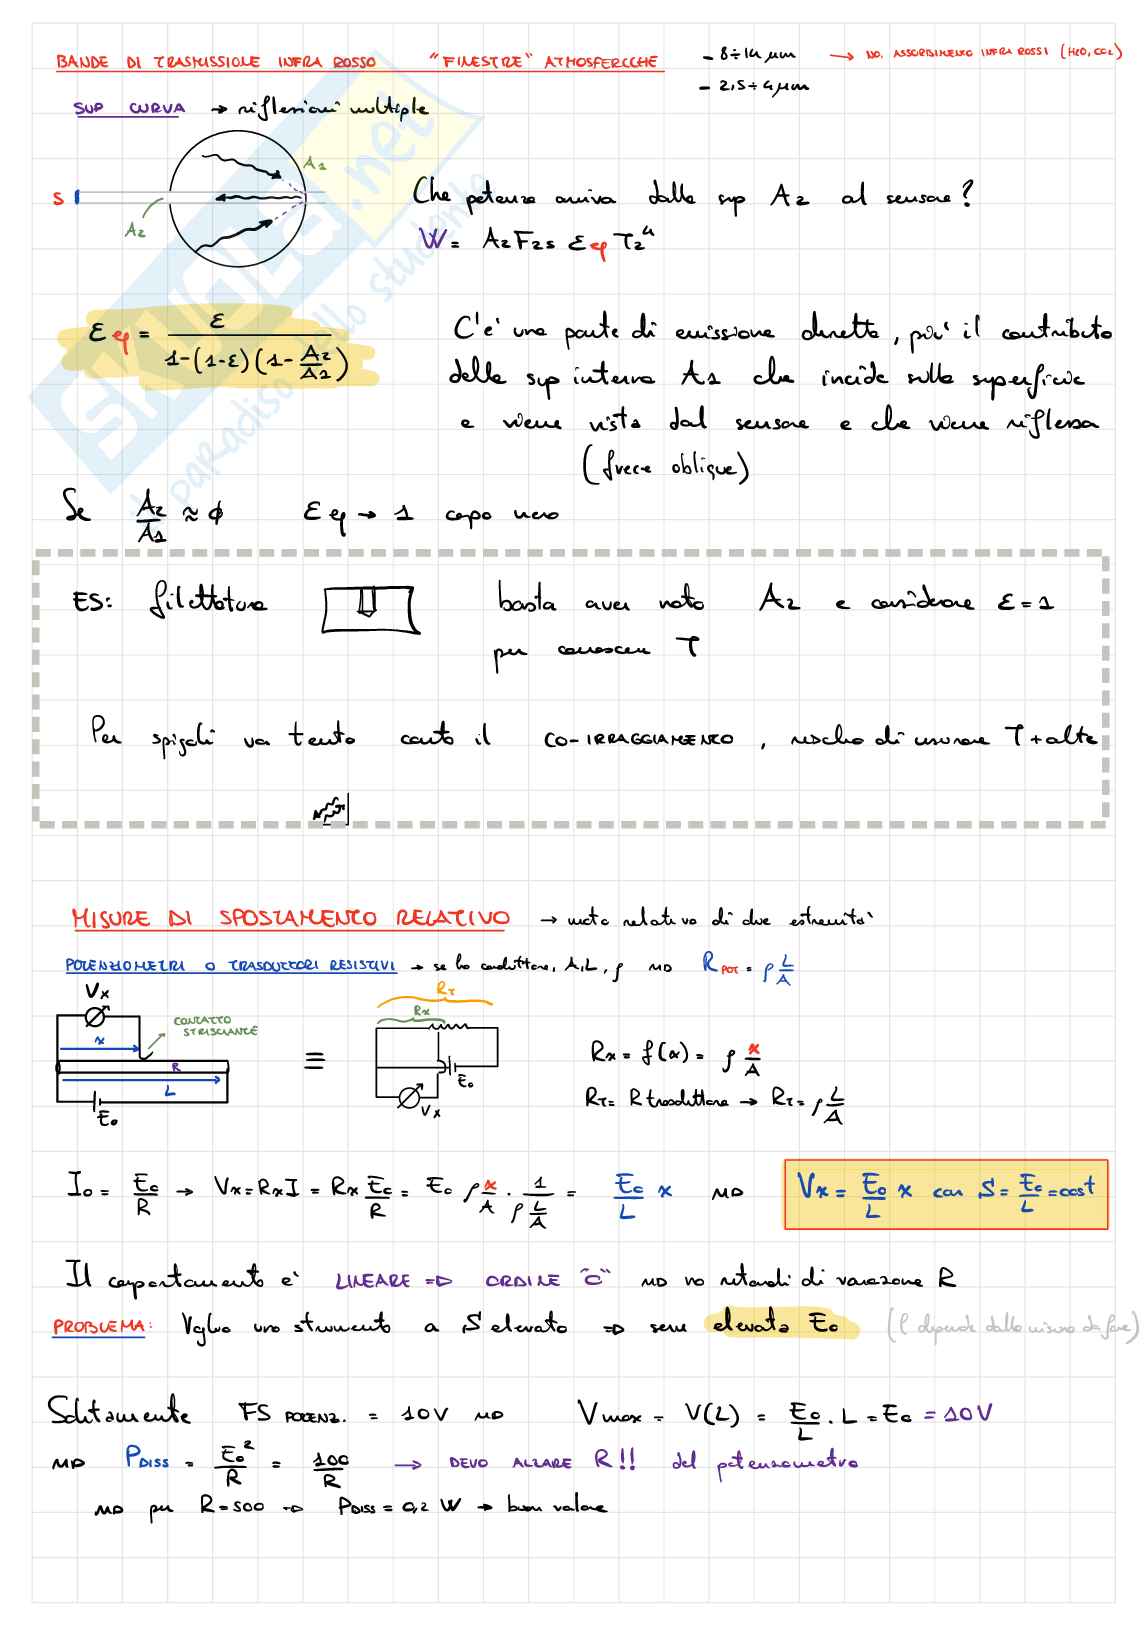 BANDE DI TRASMISSIONE INFRA ROSSO "FINESTRE" ATMOSFERICHE - 8÷14 μm → NO. ASSORBIMENTO INFRA ROSSI (H2O, CO2)
- 2,5÷4 μm
SUP CURVA → riflessioni multiple
S A1 A2
Che potenza arriva dalla sup A2 al sensore?
W = A2 F2s ε eq T2^4
ε eq = ε / (1-(1-ε)(1-A2/A1))
C'e' una parte di emissione diretta, piu' il contributo
della sup interna A1 che incide sulla superficie
e viene vista dal sensore e che viene riflessa
(frecce oblique)
Se A2/A1 ≈ ϕ ε eq → 1 corpo nero
ES: filettatura basta aver noto A2 e considerare ε = 1
per conoscere T
Per spigoli va tenuto conto il CO-IRRAGGIAMENTO, rischio di misurare T + alte
MISURE DI SPOSTAMENTO RELATIVO → moto relativo di due estremita'
POTENZIOMETRI O TRASDUTTORI RESISTIVI → se ho conduttore, A, L, ρ ⇒ R POT = ρ L/A
Vx CONTATTO STRISCIANTE x R L E0
≡
RT Rx E0 Vx
Rx = f(x) = ρ x/A
RT = R trasduttore → RT = ρ L/A
I0 = E0/R → Vx = Rx I = Rx E0/R = E0 ρ x/A · 1/(ρ L/A) = E0/L x ⇒ Vx = E0/L x con S = E0/L = cost
Il comportamento e' LINEARE ⇒ ORDINE "0" ⇒ no ritardi di variazione R
PROBLEMA: Voglio uno strumento a S elevato ⇒ serve elevata E0 (L dipende dalla misura da fare)
Solitamente FS POTENZ. = 10V ⇒ Vmax = V(L) = E0/L · L = E0 = 10V
⇒ PDISS = E0²/R = 100/R → DEVO ALZARE R!! del potenziometro
⇒ per R = 500 ⇒ PDISS = 0,2 W → buon valore
SKUOLA.net
paradiso dello studente